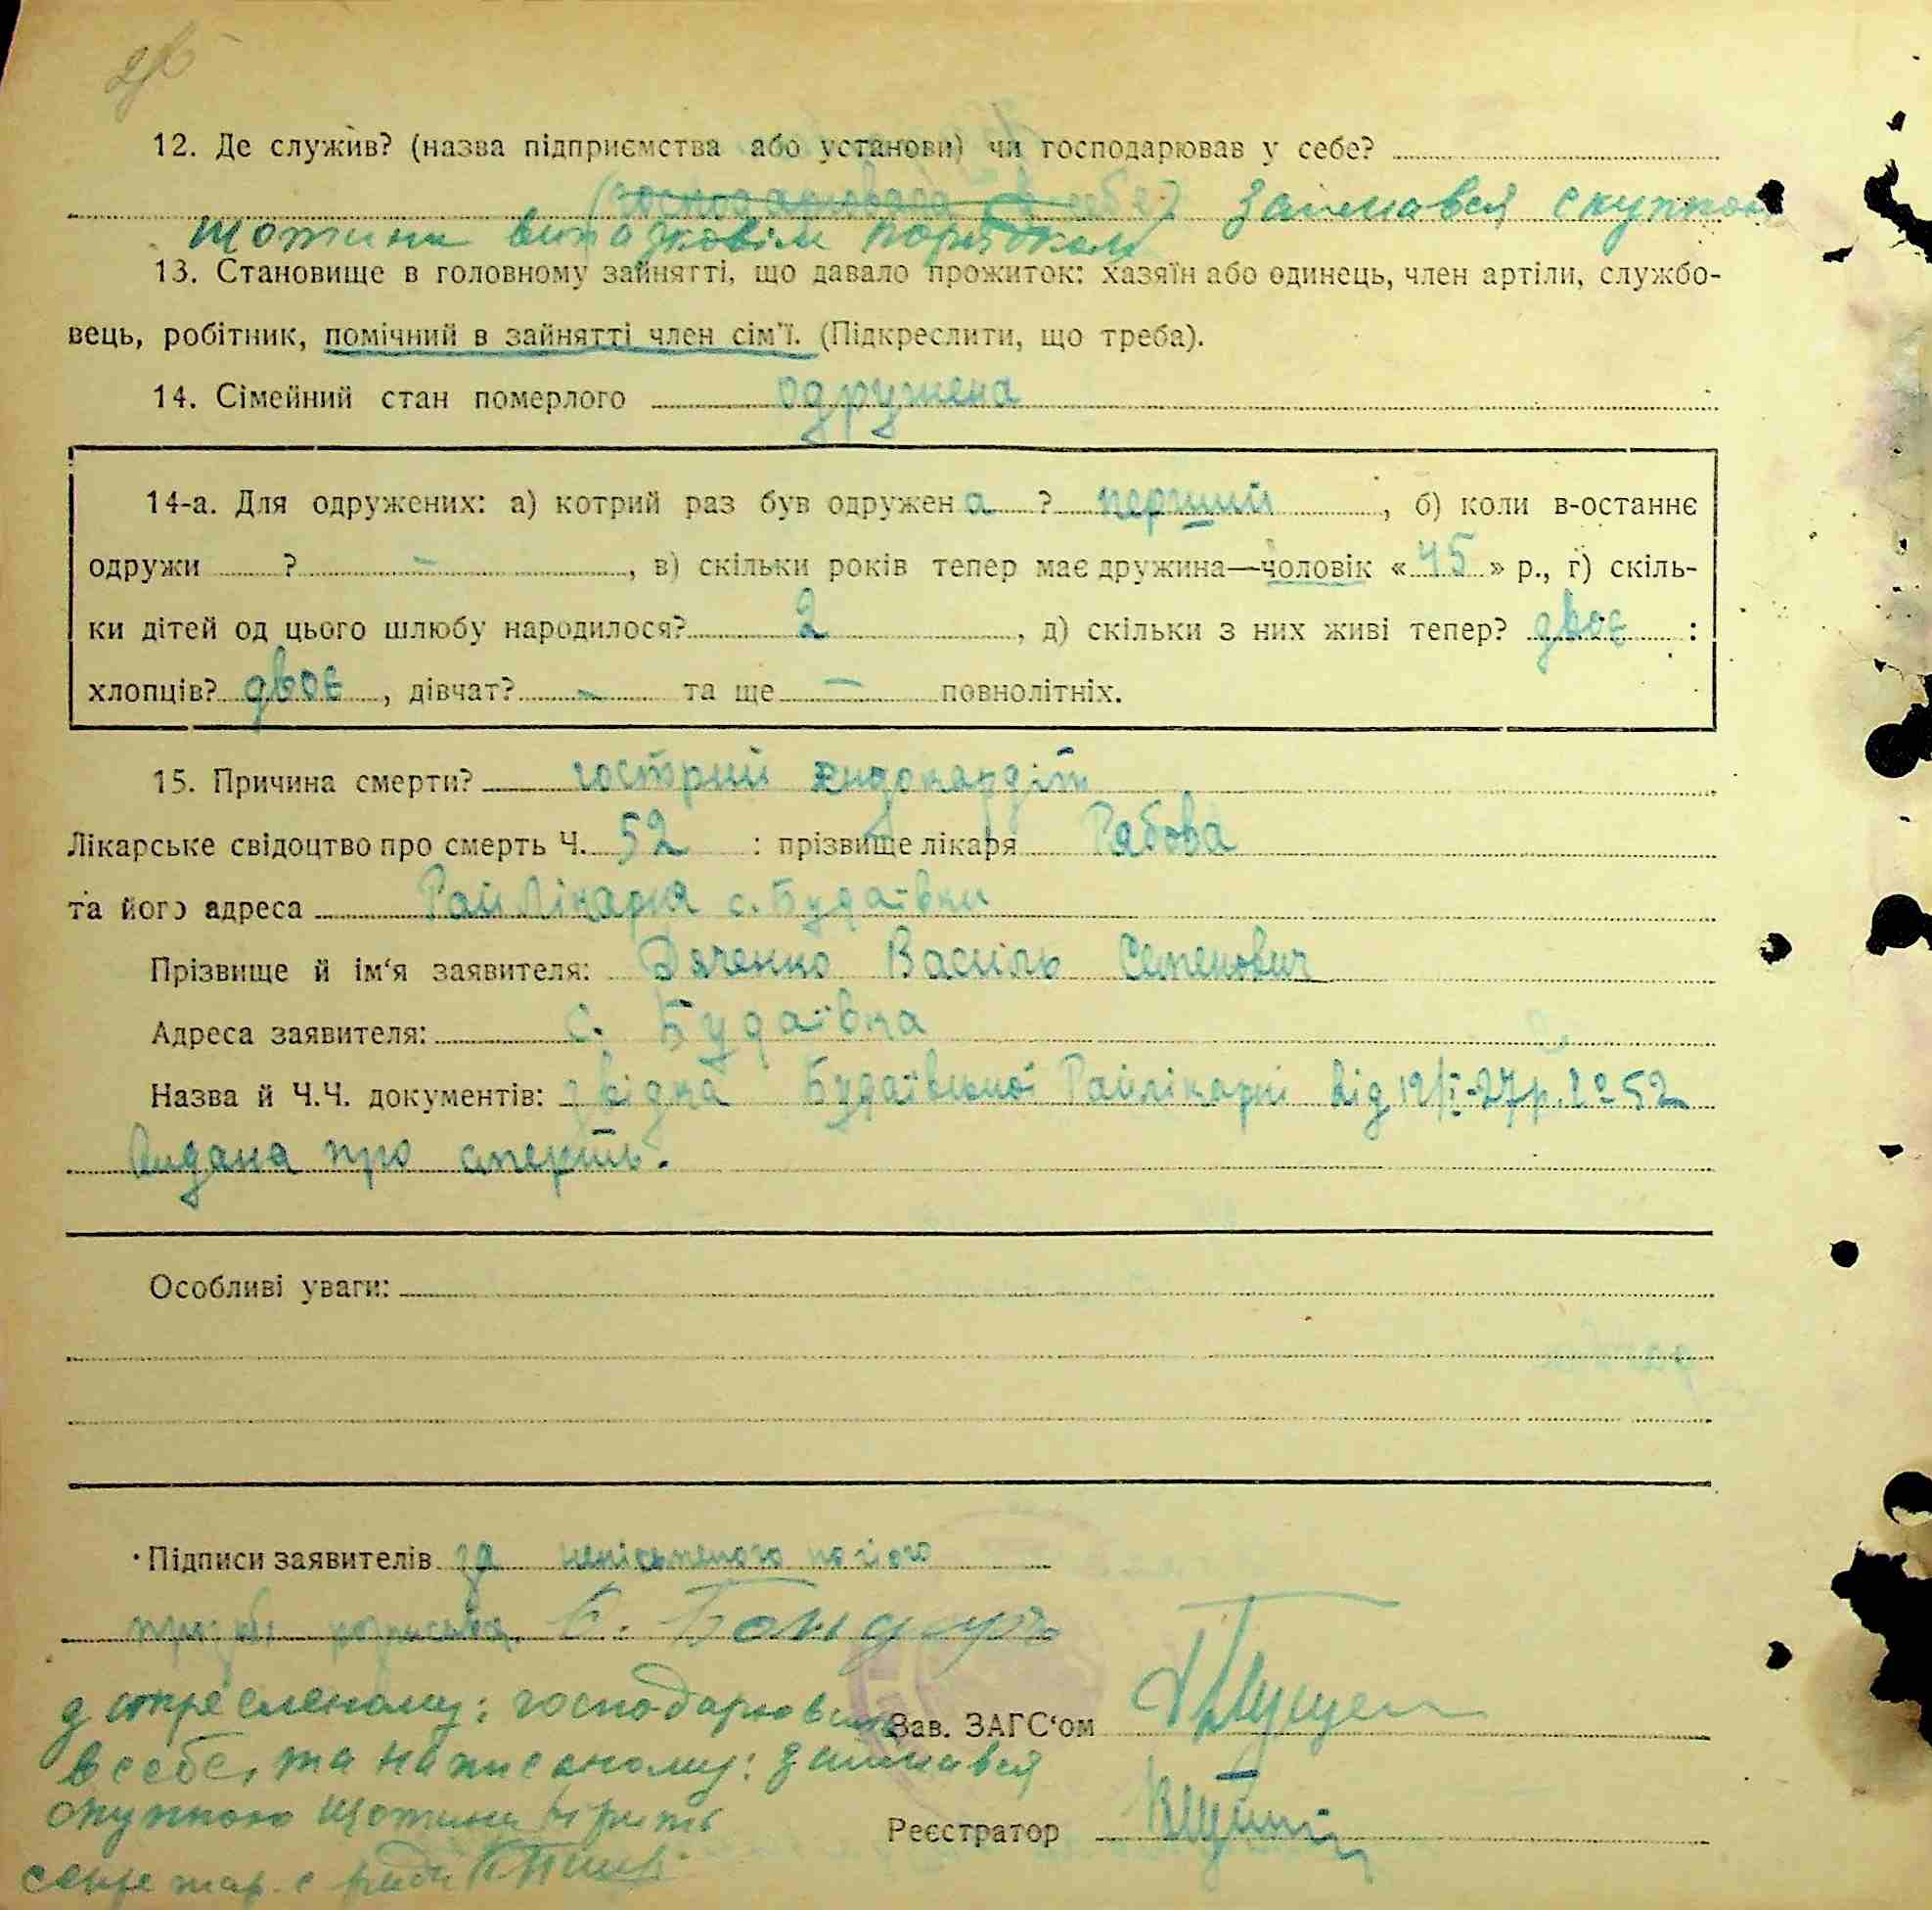 12. Де служив? (назва підприємства або установи) чи господарював у себе?
Займався скупкою
щотини випадковім порядком
13. Становище в головному зайнятті, що давало прожиток: хазяїн або одинець, член артіли, службо-
вець, робітник, помічний в зайнятті член сім'ї. (Підкреслити, що треба).
14. Сімейний стан померлого одружена
14-а. Для одружених: а) котрий раз був одружен а ? перший , б) коли в-останнє
одружи ? – , в) скільки років тепер має дружина—чоловік «45» р., г) скіль-
ки дітей од цього шлюбу народилося? 2 , д) скільки з них живі тепер? двоє :
хлопців? двоє , дівчат? – та ще – повнолітніх.
15. Причина смерти? гострий ендокардіт
Лікарське свідоцтво про смерть Ч. 52 : прізвище лікаря Рябова
та його адреса Райлікарня с. Будаївки
Прізвище й ім'я заявителя: Дяченко Василь Семенович
Адреса заявителя: с. Будаївка
Назва й Ч.Ч. документів: звідка Будаївської Райлікарні від 12/І-37р. № 52
видана про смерть.
Особливі уваги:
Підписи заявителів за неписьменого по його
просьбі Б. Бондар
закресленому: господарював
в себе, та написаному: займався
скупкою щотини вірить
Зав. ЗАГС'ом
секретар с ради
Реєстратор